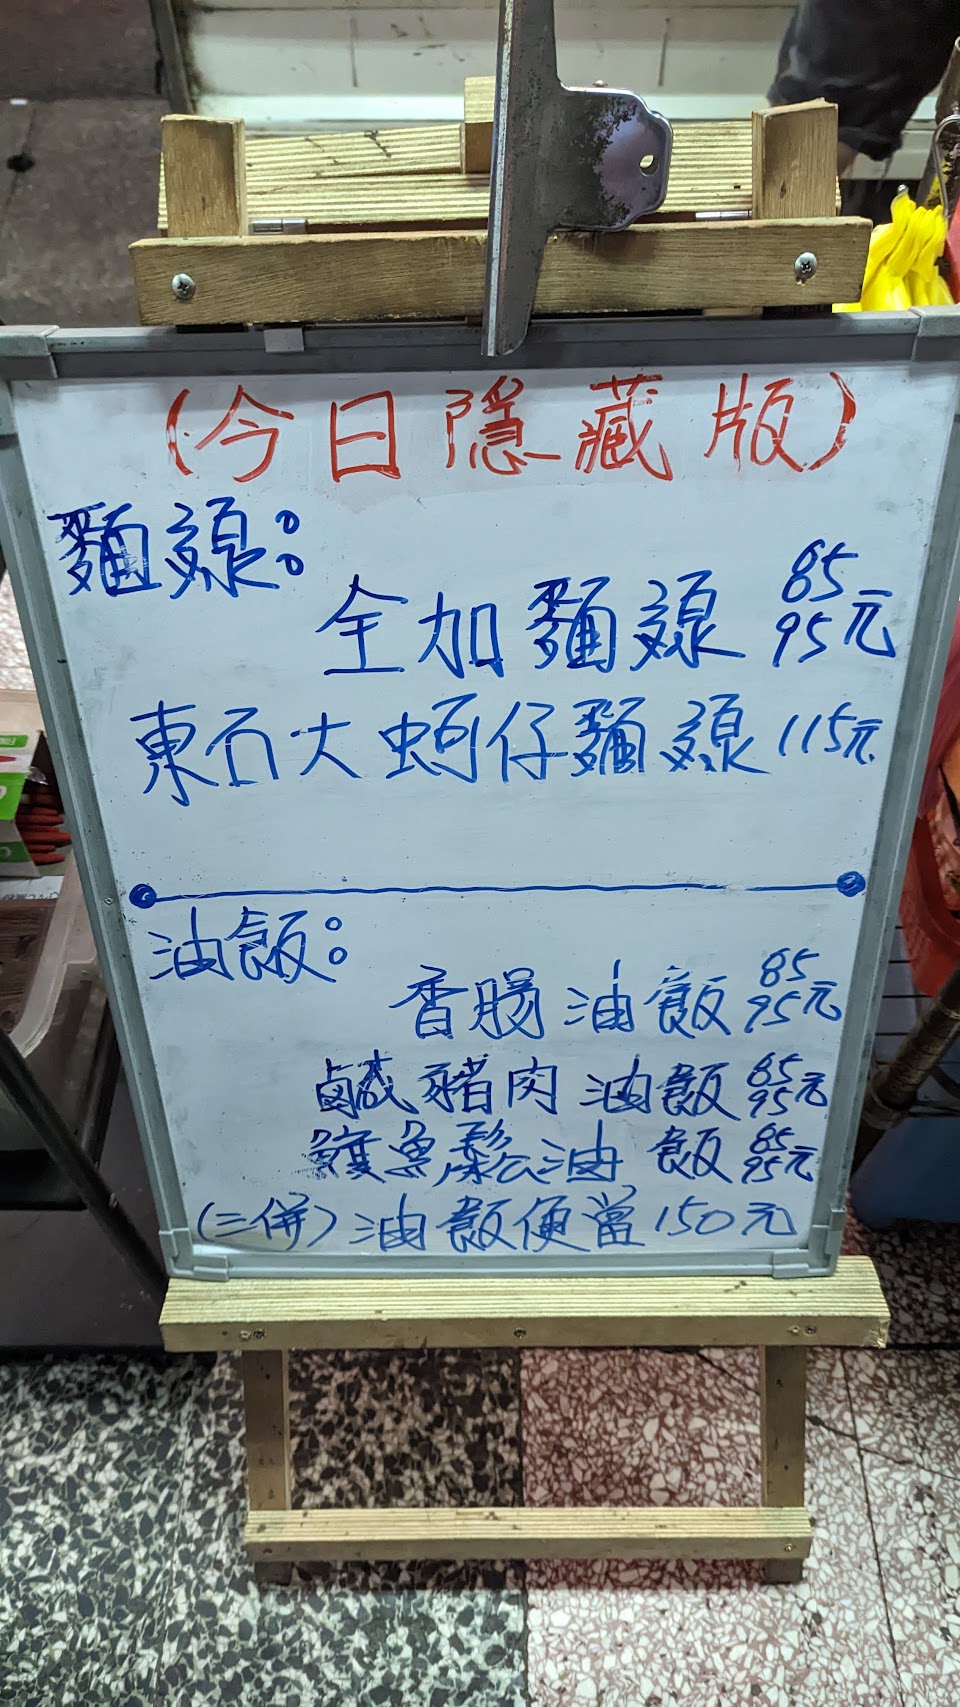 (今日隱藏版)
麵線：
全加麵線 85 95元
東石大蚵仔麵線 115元
油飯：
香腸油飯 85 95元
鹹豬肉油飯 85 95元
鱈魚鬆油飯 85 95元
(三併)油飯便當150元